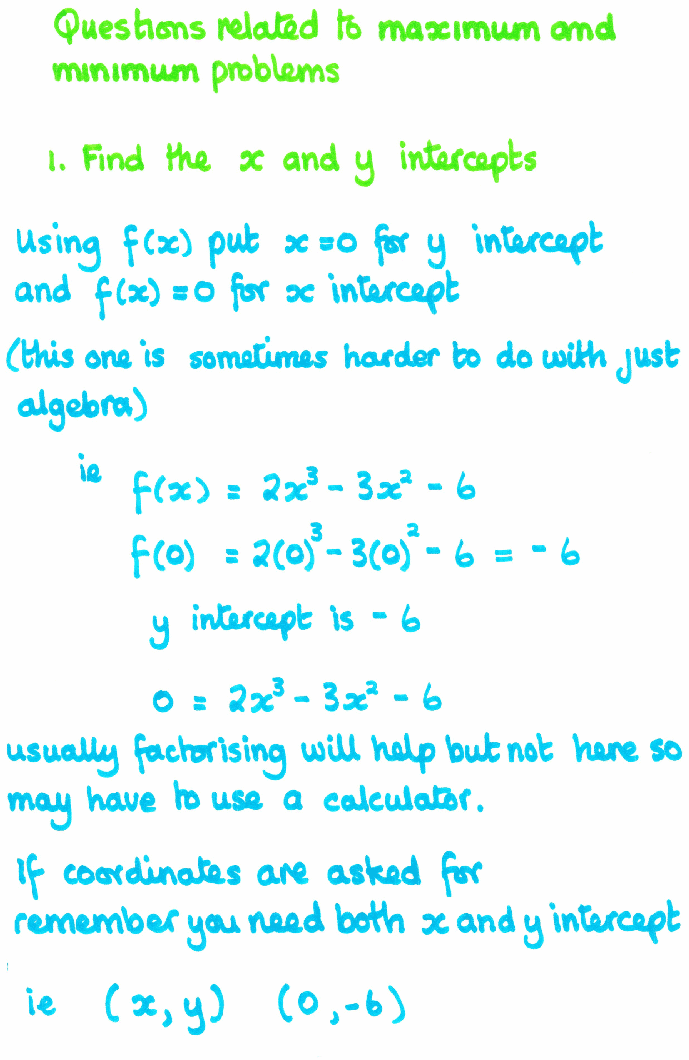 Questions related to maximum and
minimum problems
1. Find the x and y intercepts
Using f(x) put x = 0 for y intercept
and f(x) = 0 for x intercept
(this one is sometimes harder to do with just
algebra)
ie f(x) = 2x³ - 3x² - 6
f(0) = 2(0)³ - 3(0)² - 6 = - 6
y intercept is - 6
0 = 2x³ - 3x² - 6
usually factorising will help but not here so
may have to use a calculator.
If coordinates are asked for
remember you need both x and y intercept
ie (x, y) (0, -6)